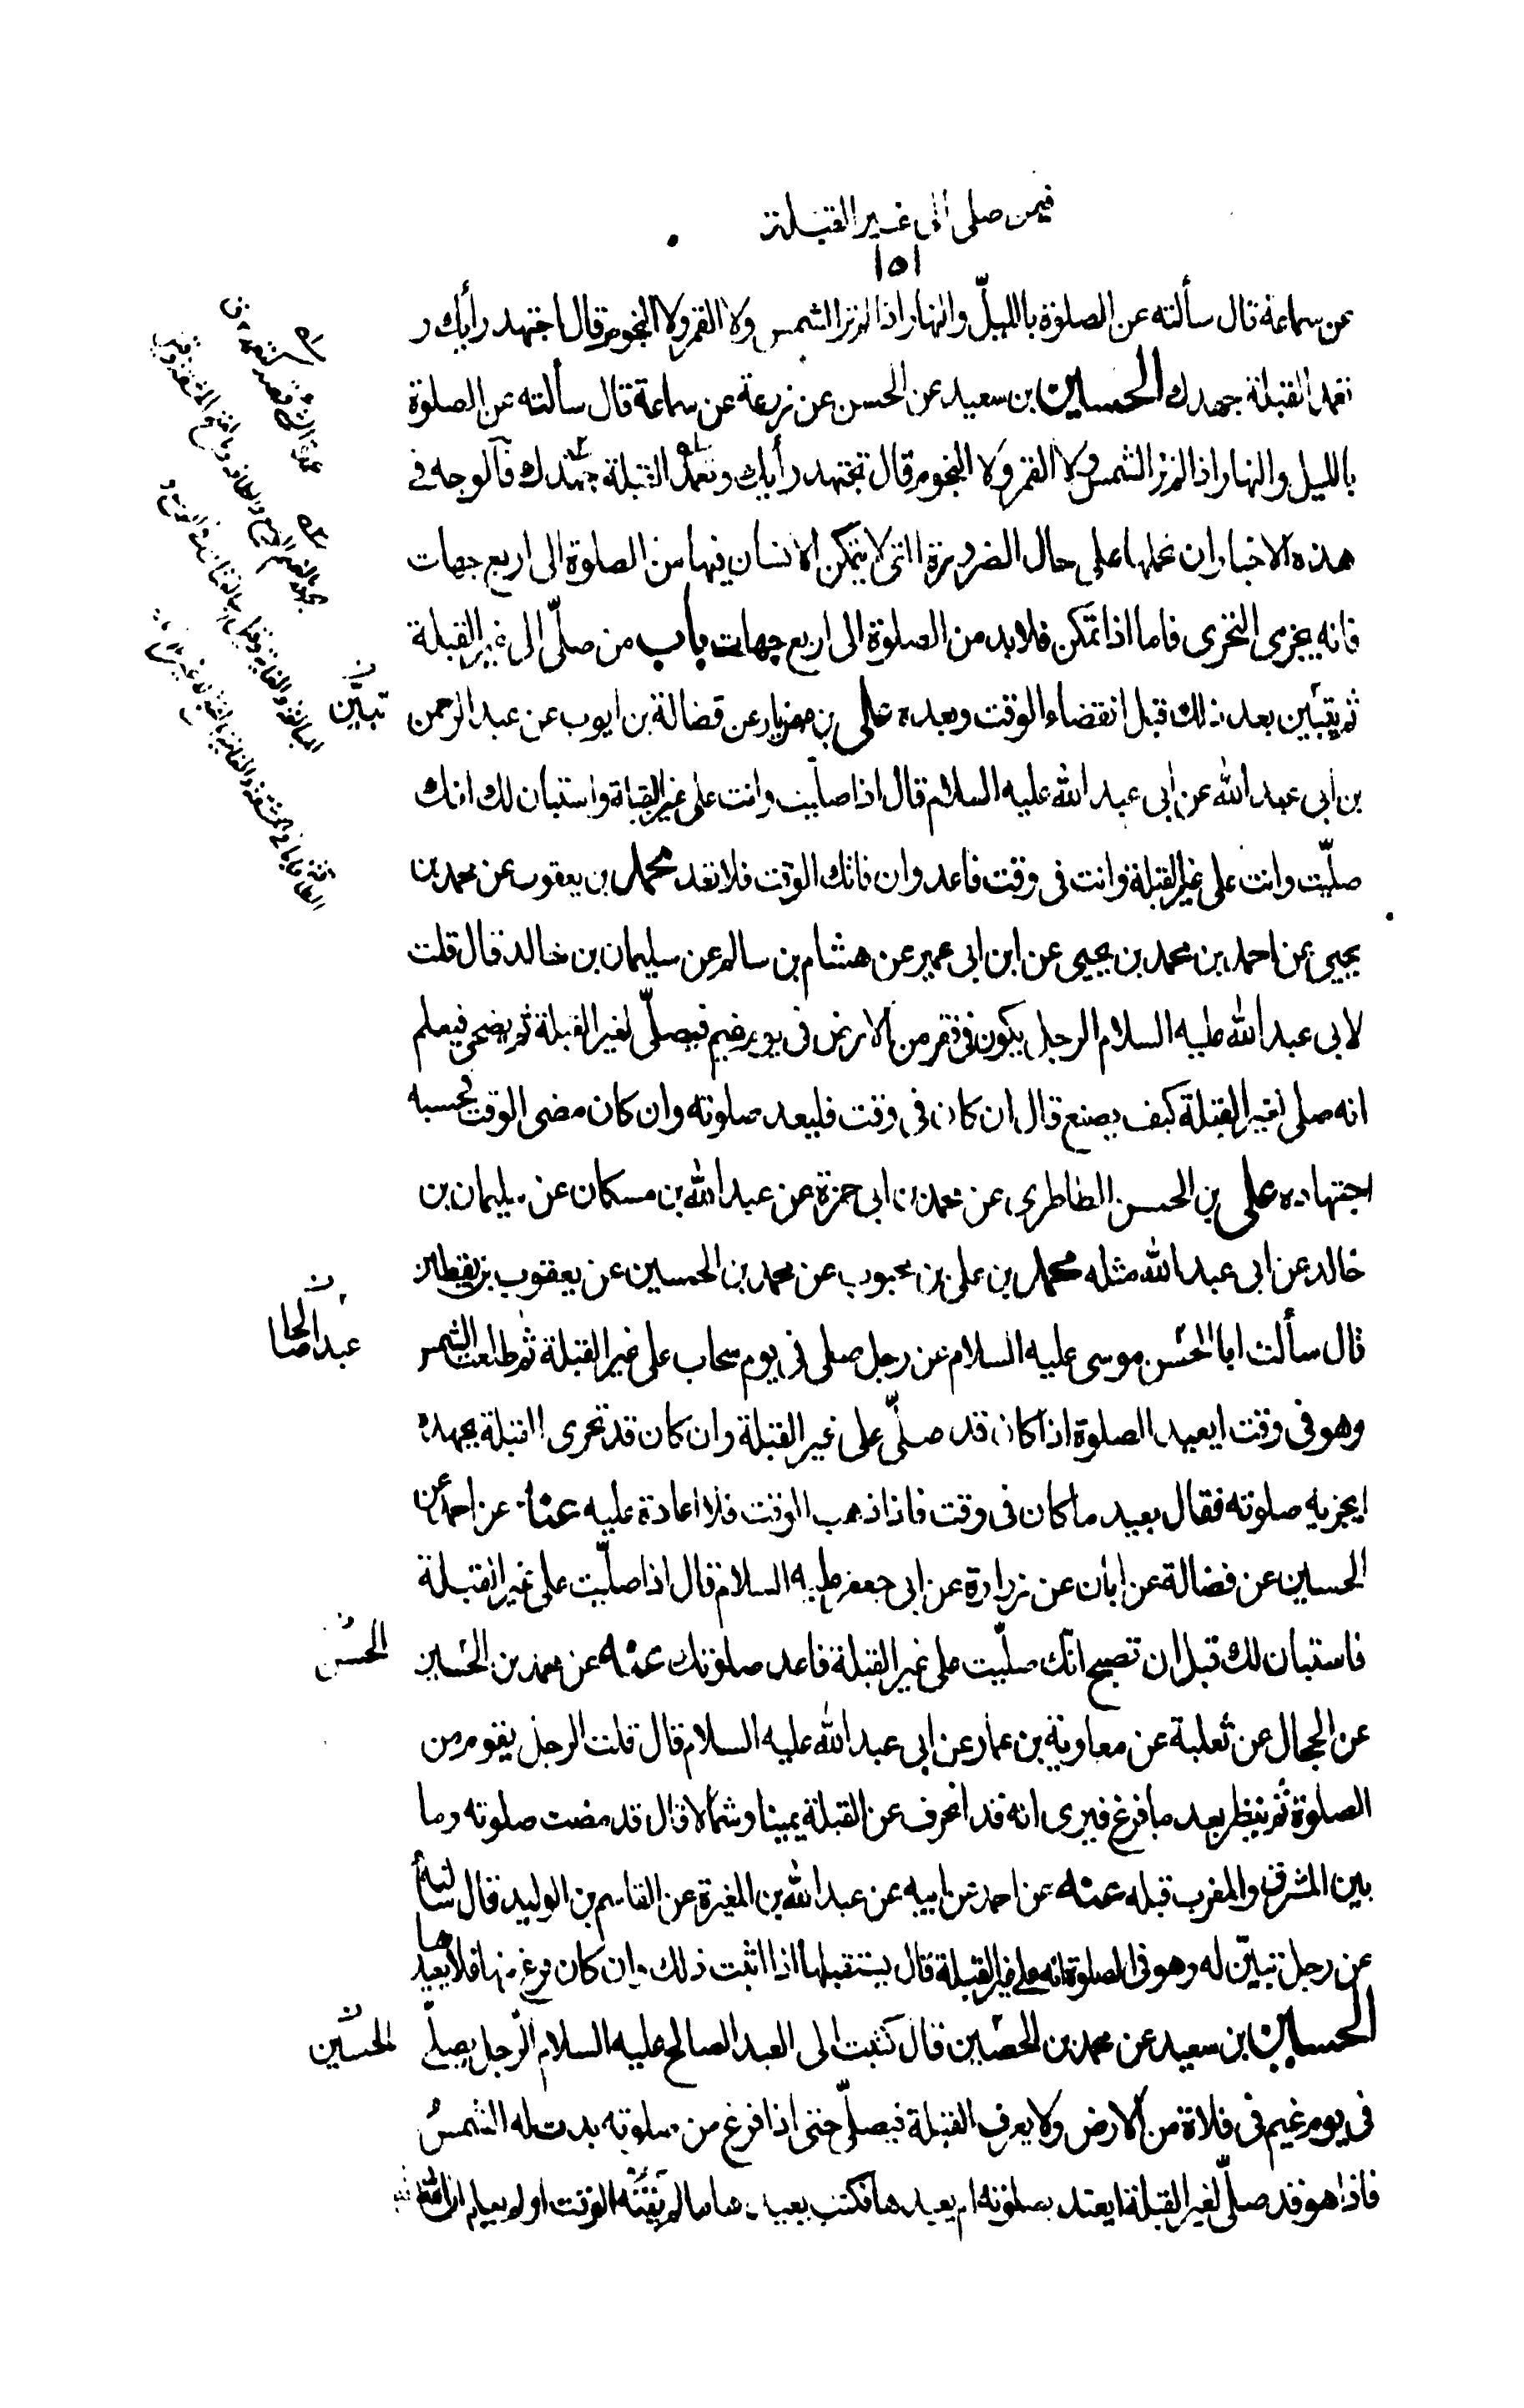 فيمن صلى الى غير القبلة
١٥١
عن سماعة قال سألته عن الصلوة بالليل والنهار اذا لم تر الشمس ولا القمر ولا النجوم قال اجتهد رأيك و
تعمد القبلة جهدك الحسين بن سعيد عن الحسن عن زرعة عن سماعة قال سألته عن الصلوة
بالليل والنهار اذا لم تر الشمس ولا القمر ولا النجوم قال تجتهد رأيك وتعمد القبلة جهدك فالوجه في
هذه الاخبار ان نحملها على حال الضرورة التى لا يتمكن الانسان فيها من الصلوة الى اربع جهات
فانه يجزى التحرى فاما اذا تمكن فلا بد من الصلوة الى اربع جهات باب من صلّى الى غير القبلة
ثم يتبين بعد ذلك قبل انقضاء الوقت وبعده على بن مهزيار عن فضالة بن ايوب عن عبد الرحمن
تبيّن
بن ابى عبد الله عن ابى عبد الله عليه السلام قال اذا صليت وانت على غير القبلة واستبان لك انك
صلّيت وانت على غير القبلة وانت فى وقت فاعد وان فاتك الوقت فلا تعد محمد بن يعقوب عن محمد بن
يحيى عن احمد بن محمد بن يحيى عن ابن ابى عمير عن هشام بن سالم عن سليمان بن خالد قال قلت
لابى عبد الله عليه السلام الرجل يكون فى قفر من الارض فى يوم غيم فيصلّى لغير القبلة ثم يضحى فيعلم
انه صلى لغير القبلة كيف يصنع قال ان كان فى وقت فليعد صلوته وان كان مضى الوقت فحسبه
اجتهاده على بن الحسن الطاطرى عن محمد بن ابى حمزة عن عبد الله بن مسكان عن سليمان بن
خالد عن ابى عبد الله مثله محمد بن على بن محبوب عن محمد بن الحسين عن يعقوب بن يقطين
قال سألت ابا الحسن موسى عليه السلام عن رجل صلى فى يوم سحاب على غير القبلة ثم طلعت الشمس
وهو فى وقت ايعيد الصلوة اذا كان قد صلّى على غير القبلة وان كان قد تحرى القبلة بجهده
ايجزيه صلوته فقال يعيد ما كان فى وقت فاذا ذهب الوقت فلا اعادة عليه عنه عن احمد عن
الحسين عن فضالة عن ابان عن زرارة عن ابى جعفر عليه السلام قال اذا صلّيت على غير القبلة
فاستبان لك قبل ان تصبح انّك صلّيت على غير القبلة فاعد صلوتك عنه عن محمد بن الحسين
الحسن
عن الحجال عن ثعلبة عن معاوية بن عمار عن ابى عبد الله عليه السلام قال قلت الرجل يقوم من
الصلوة ثم ينظر بعد ما فرغ فيرى انه قد انحرف عن القبلة يمينا وشمالا قال قد مضت صلوته وما
بين المشرق والمغرب قبله عنه عن احمد عن ابيه عن عبد الله بن المغيرة عن القاسم بن الوليد قال سألته
عن رجل تبيّن له وهو فى الصلوة انه على غير القبلة قال يستقبلها اذا اثبت ذلك وان كان فرغ منها فلا يعيدها
الحسين بن سعيد عن محمد بن الحصين قال كتبت الى العبد الصالح عليه السلام الرجل يصلّى
الحسين
فى يوم غيم فى فلاة من الارض ولا يعرف القبلة فيصلّى حتى اذا فرغ من صلوته بدت له الشمس
فاذا هو قد صلّى لغير القبلة ايعتد بصلوته ام يعيدها فكتب يعيدها ما لم يفته الوقت اولم يعلم ان الله